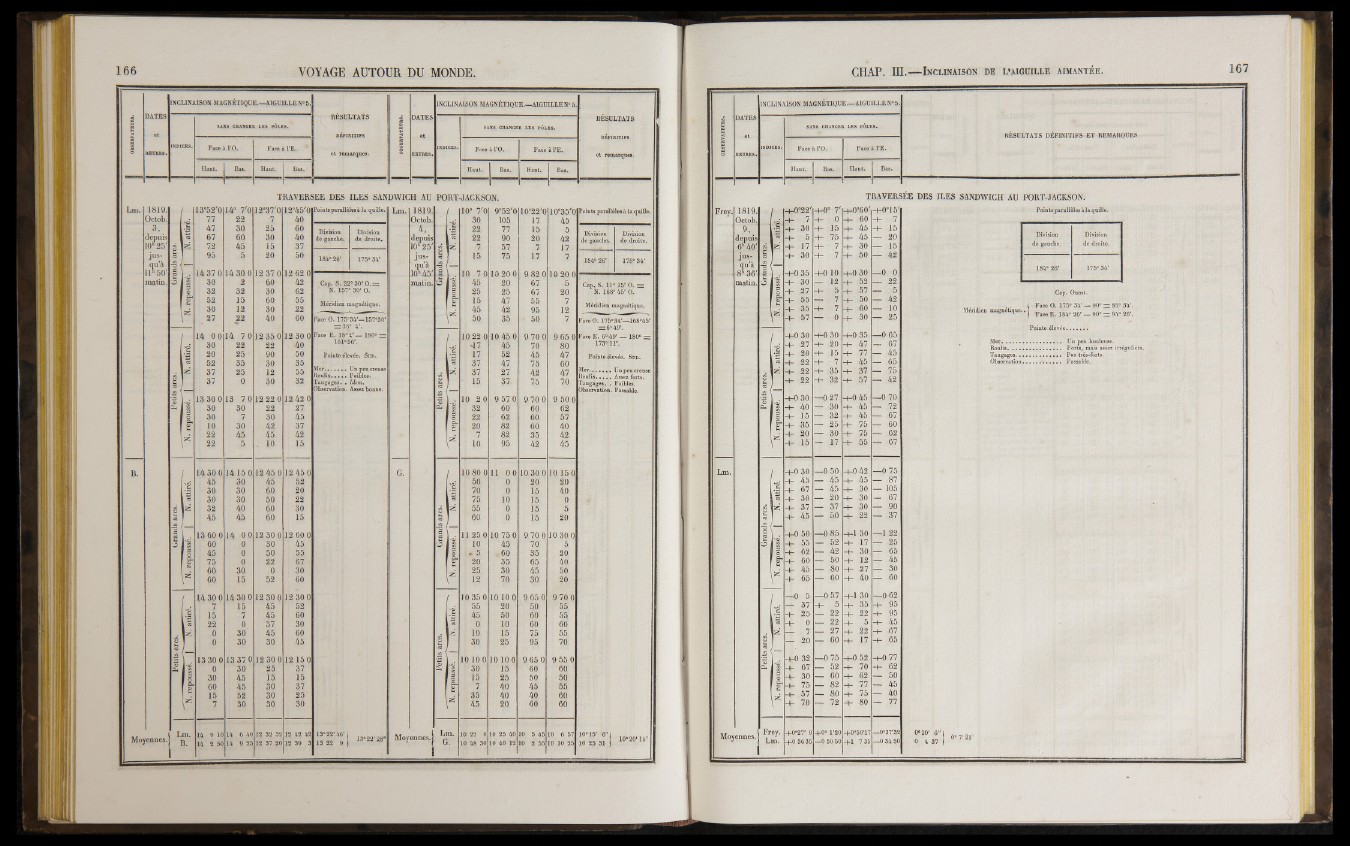 166 VOYAGE AUTOUR DU MONDE.
OBSERVATEURS. DATES et HEURES. INDICES. INCLINAISON MAGNÉTIQUE.—AIGUILLE N° 5. RÉSULTATS DÉFINITIFS et remarques.
SANS CHANGER LES PÔLES.
Face à l'O. Face à l'E.
Haut. Bas. Haut. Bas.
TRAVERSÉE DES ILES SANDWICH AU PORT-JACKSON.
Lm. 1819. Octob. 3, depuis 10h 25' jusqu'à 11h 50' matin.
Grands arcs.
N. attiré.
13°52'0 14° 7'0 12°37'0 12°45'0
77 22 7 40
47 30 25 60
67 60 30 40
72 45 15 37
95 5 20 50
N. repoussé.
14 37 0 14 30 0 12 37 0 12 62 0
30 2 60 42
32 32 30 62
52 15 60 55
30 12 30 22
27 22 40 60
Petits arcs.
N. attiré.
14 0 0 14 7 0 12 35 0 12 30 0
30 22 22 40
20 25 90 50
52 35 30 35
37 25 12 55
37 0 30 32
N. repoussé.
13 30 0 13 7 0 12 22 0 12 42 0
30 30 22 27
30 7 30 45
10 30 42 37
22 45 45 42
22 5 10 15
Points parallèles à la quille.
Division de gauche. Division de droite.
184° 26' 175° 34'
Cap. S. 22° 30' O. =
N. 157° 30' O.
Méridien magnétique.
Face O. 175°34'—157°30'
= 18° 4'.
Face E. 18° 4' — 180° =
161°56'.
Pointe élevée. Sud.
Mer....... Un peu creuse
Roulis..... Faibles.
Tangages. . Idem.
Observation. Assez bonne.
B.
Grands arcs.
N. attiré.
14 30 0 14 15 0 12 45 0 12 45 0
45 30 45 52
30 30 60 20
30 30 50 22
32 40 60 30
45 45 60 15
N. repoussé.
13 60 0 14 0 0 12 30 0 12 60 0
60 0 30 45
45 0 50 55
75 0 22 67
60 30 0 30
60 15 52 60
Petits arcs.
N. attiré.
14 30 0 14 30 0 12 30 0 12 30 0
7 15 45 52
15 7 45 60
22 0 37 30
0 30 45 60
0 30 30 45
N. repoussé.
13 30 0 13 37 0 12 30 0 12 15 0
0 30 25 37
30 45 15 15
60 45 30 37
15 52 30 25
7 30 30 30
Moyennes.
Lm. 14 9 10 14 6 40 12 32 32 12 42 42 13°22'46"
B. 14 2 50 14 9 25 12 37 20 12 39 3 13 22 9
13°22'28"
OBSERVATEURS. DATES et HEURES. INDICES. INCLINAISON MAGNÉTIQUE.—AIGUILLE N° 5. RÉSULTATS DÉFINITIFS et remarques.
SANS CHANGER LES PÔLES.
Face à l'O. Face à l'E.
Haut. Bas. Haut. Bas.
Lm. 1819. Octob. 4, depuis 10h 25' jusqu'à 10h 45' matin.
Grands arcs.
N. attiré.
10° 7'0 9°52'0 10°22'0 10°35'0
30 105 17 45
22 77 15 5
22 90 20 42
7 57 7 17
15 75 17 7
N. repoussé.
10 7 0 10 20 0 9 82 0 10 20 0
45 20 67 5
25 25 67 20
15 47 55 7
45 42 95 12
50 35 50 7
Petits arcs.
N. attiré.
10 22 0 10 45 0 9 70 0 9 65 0
47 45 70 80
17 52 45 47
37 47 75 60
37 27 42 47
15 37 75 70
N. repoussé.
10 2 0 9 57 0 9 70 0 9 50 0
32 60 60 62
22 62 60 57
20 82 60 40
7 82 35 42
10 95 42 45
Points parallèles à la quille.
Division de gauche. Division de droite.
184° 26' 175° 34'
Cap. S. 11° 15' O. =
N. 168° 45' O.
Méridien magnétique.
Face O. 175°34'—168°45'
= 6°49'.
Face E. 6°49' — 180° =
173°11'.
Pointe élevée. Sud.
Mer....... Un peu creuse
Roulis..... Assez forts.
Tangages. . Faibles.
Observation. Passable.
G.
Grands arcs.
N. attiré.
10 80 0 11 0 0 10 30 0 10 15 0
50 0 20 20
70 0 15 40
75 10 15 0
55 0 15 5
60 0 15 20
N. repoussé.
11 25 0 10 75 0 9 70 0 10 30 0
10 45 70 5
5 60 35 20
20 55 65 40
25 30 45 50
12 70 30 20
Petits arcs.
N. attiré.
10 35 0 10 10 0 9 65 0 9 70 0
55 20 50 55
45 50 60 55
0 10 60 60
10 15 75 55
30 25 95 70
N. repoussé.
10 10 0 10 10 0 9 65 0 9 55 0
30 15 60 60
15 25 50 50
7 40 45 55
35 40 40 60
45 20 60 60
Moyennes.
Lm. 10 22 10 25 10 5 10 6 57 10°15' 6"
G. 10 38 10 40 12 10 2 10 10 25 10 25 31
10°20'14"
CHAP. III.—INCLINAISON DE L'AIGUILLE AIMANTÉE. 167
OBSERVATEURS. DATES et HEURES. INDICES. INCLINAISON MAGNÉTIQUE.—AIGUILLE N° 5. RÉSULTATS DÉFINITIFS ET REMARQUES.
SANS CHANGER LES PÔLES.
Face à l'O. Face à l'E.
Haut. Bas. Haut. Bas.
TRAVERSÉE DES ILES SANDWICH AU PORT-JACKSON.
Frey. 1819. Octob. 9, depuis 6h 40' jusqu'à 8h 36' matin.
Grands arcs.
N. attiré.
+0°22' +0° 7' +0°60' +0°15'
+ 7 + 0 + 60 + 7
+ 30 + 15 + 45 + 15
+ 5 + 75 + 45 — 20
+ 17 + 7 + 30 — 15
+ 30 — 7 + 50 — 42
N. repoussé.
+0 35 +0 10 +0 30 —0 0
+ 30 — 12 + 52 — 22
+ 27 + 5 + 57 — 5
+ 55 — 7 + 50 — 42
+ 35 + 7 + 60 — 10
+ 57 — 0 + 30 — 25
Petits arcs.
N. attiré.
+0 30 +0 30 +0 35 —0 65
+ 27 + 20 + 47 — 67
+ 20 + 15 + 77 — 45
+ 22 + 7 + 45 — 65
+ 22 + 35 + 37 — 75
+ 22 + 32 + 57 — 42
N. repoussé.
+0 30 —0 27 +0 45 —0 70
+ 40 — 30 + 45 — 72
+ 15 — 32 + 45 — 67
+ 35 — 25 + 75 — 60
+ 20 — 30 + 75 — 62
+ 15 — 17 + 55 — 67
Points parallèles à la quille.
Division de gauche. Division de droite.
184° 26' 175° 34'
Cap. Ouest.
Méridien magnétique..
Face O. 175° 34' — 90° = 85° 34'.
Face E. 184° 26' — 90° = 94° 26'.
Pointe élevée.......
Mer................. Un peu houleuse.
Roulis............... Forts, mais assez irréguliers.
Tangages............. Pas très-forts.
Observation........... Passable.
Lm.
Grands arcs.
N. attiré.
+0 30 —0 50 +0 42 —0 75
+ 45 — 45 + 45 — 87
+ 67 — 45 + 30 — 105
+ 30 — 20 + 30 — 67
+ 37 — 37 + 30 — 90
+ 45 — 50 + 22 — 37
N. repoussé.
+0 50 —0 85 +1 30 —1 22
+ 55 — 52 + 17 — 25
+ 62 — 42 + 30 — 65
+ 60 — 50 + 12 — 45
+ 45 — 80 + 27 — 30
+ 65 — 60 + 40 — 60
Petits arcs.
N. attiré.
—0 5 —0 57 +1 30 —0 62
— 37 + 5 + 35 + 95
+ 25 — 22 + 22 + 95
+ 0 — 22 + 5 + 45
— 7 — 27 + 22 + 67
— 20 — 60 + 17 + 65
N. repoussé.
+0 32 —0 75 +0 52 +0 77
+ 67 — 52 + 70 + 62
+ 30 — 60 + 62 — 50
+ 75 — 82 + 77 — 45
+ 57 — 80 + 75 — 40
+ 70 — 72 + 80 — 77
Moyennes.
Frey. +0°27' 0 +0° 1'20 +0°50'17 —0°17'52 0°10' 4"
Lm. +0 36 35 —0 50 50 +1 7 35 —0 34 50 0 4 37
0° 7' 21"